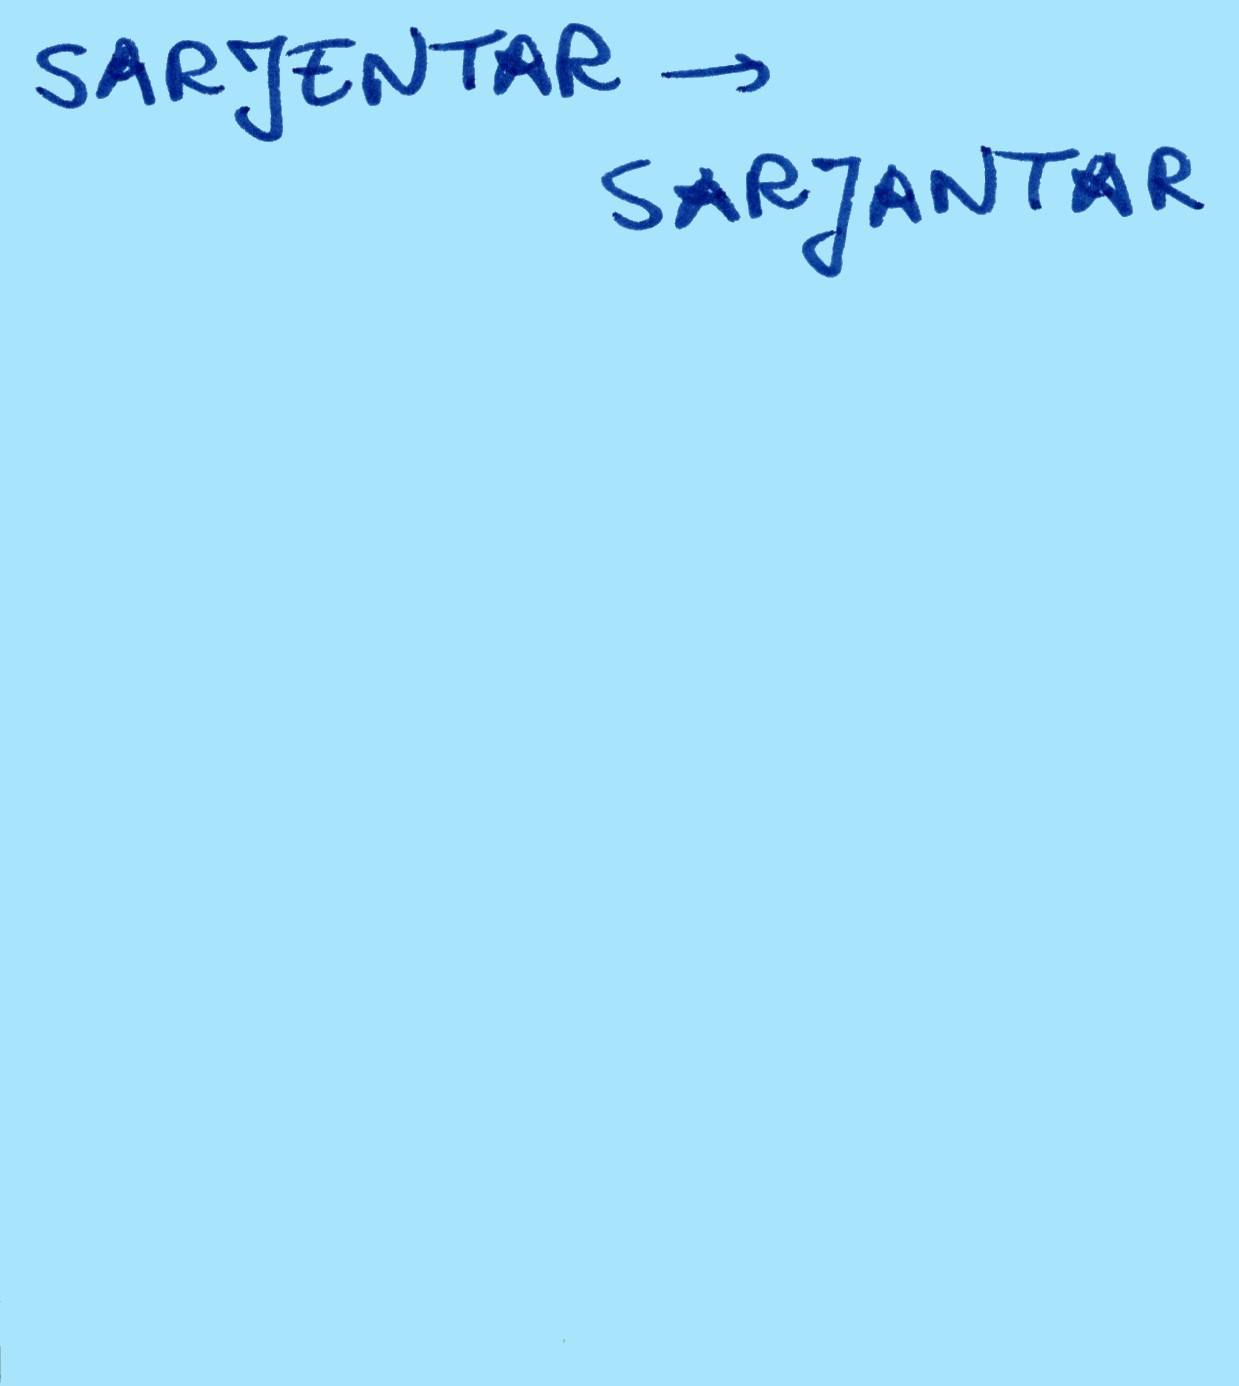 SARJENTAR →
SARJANTAR